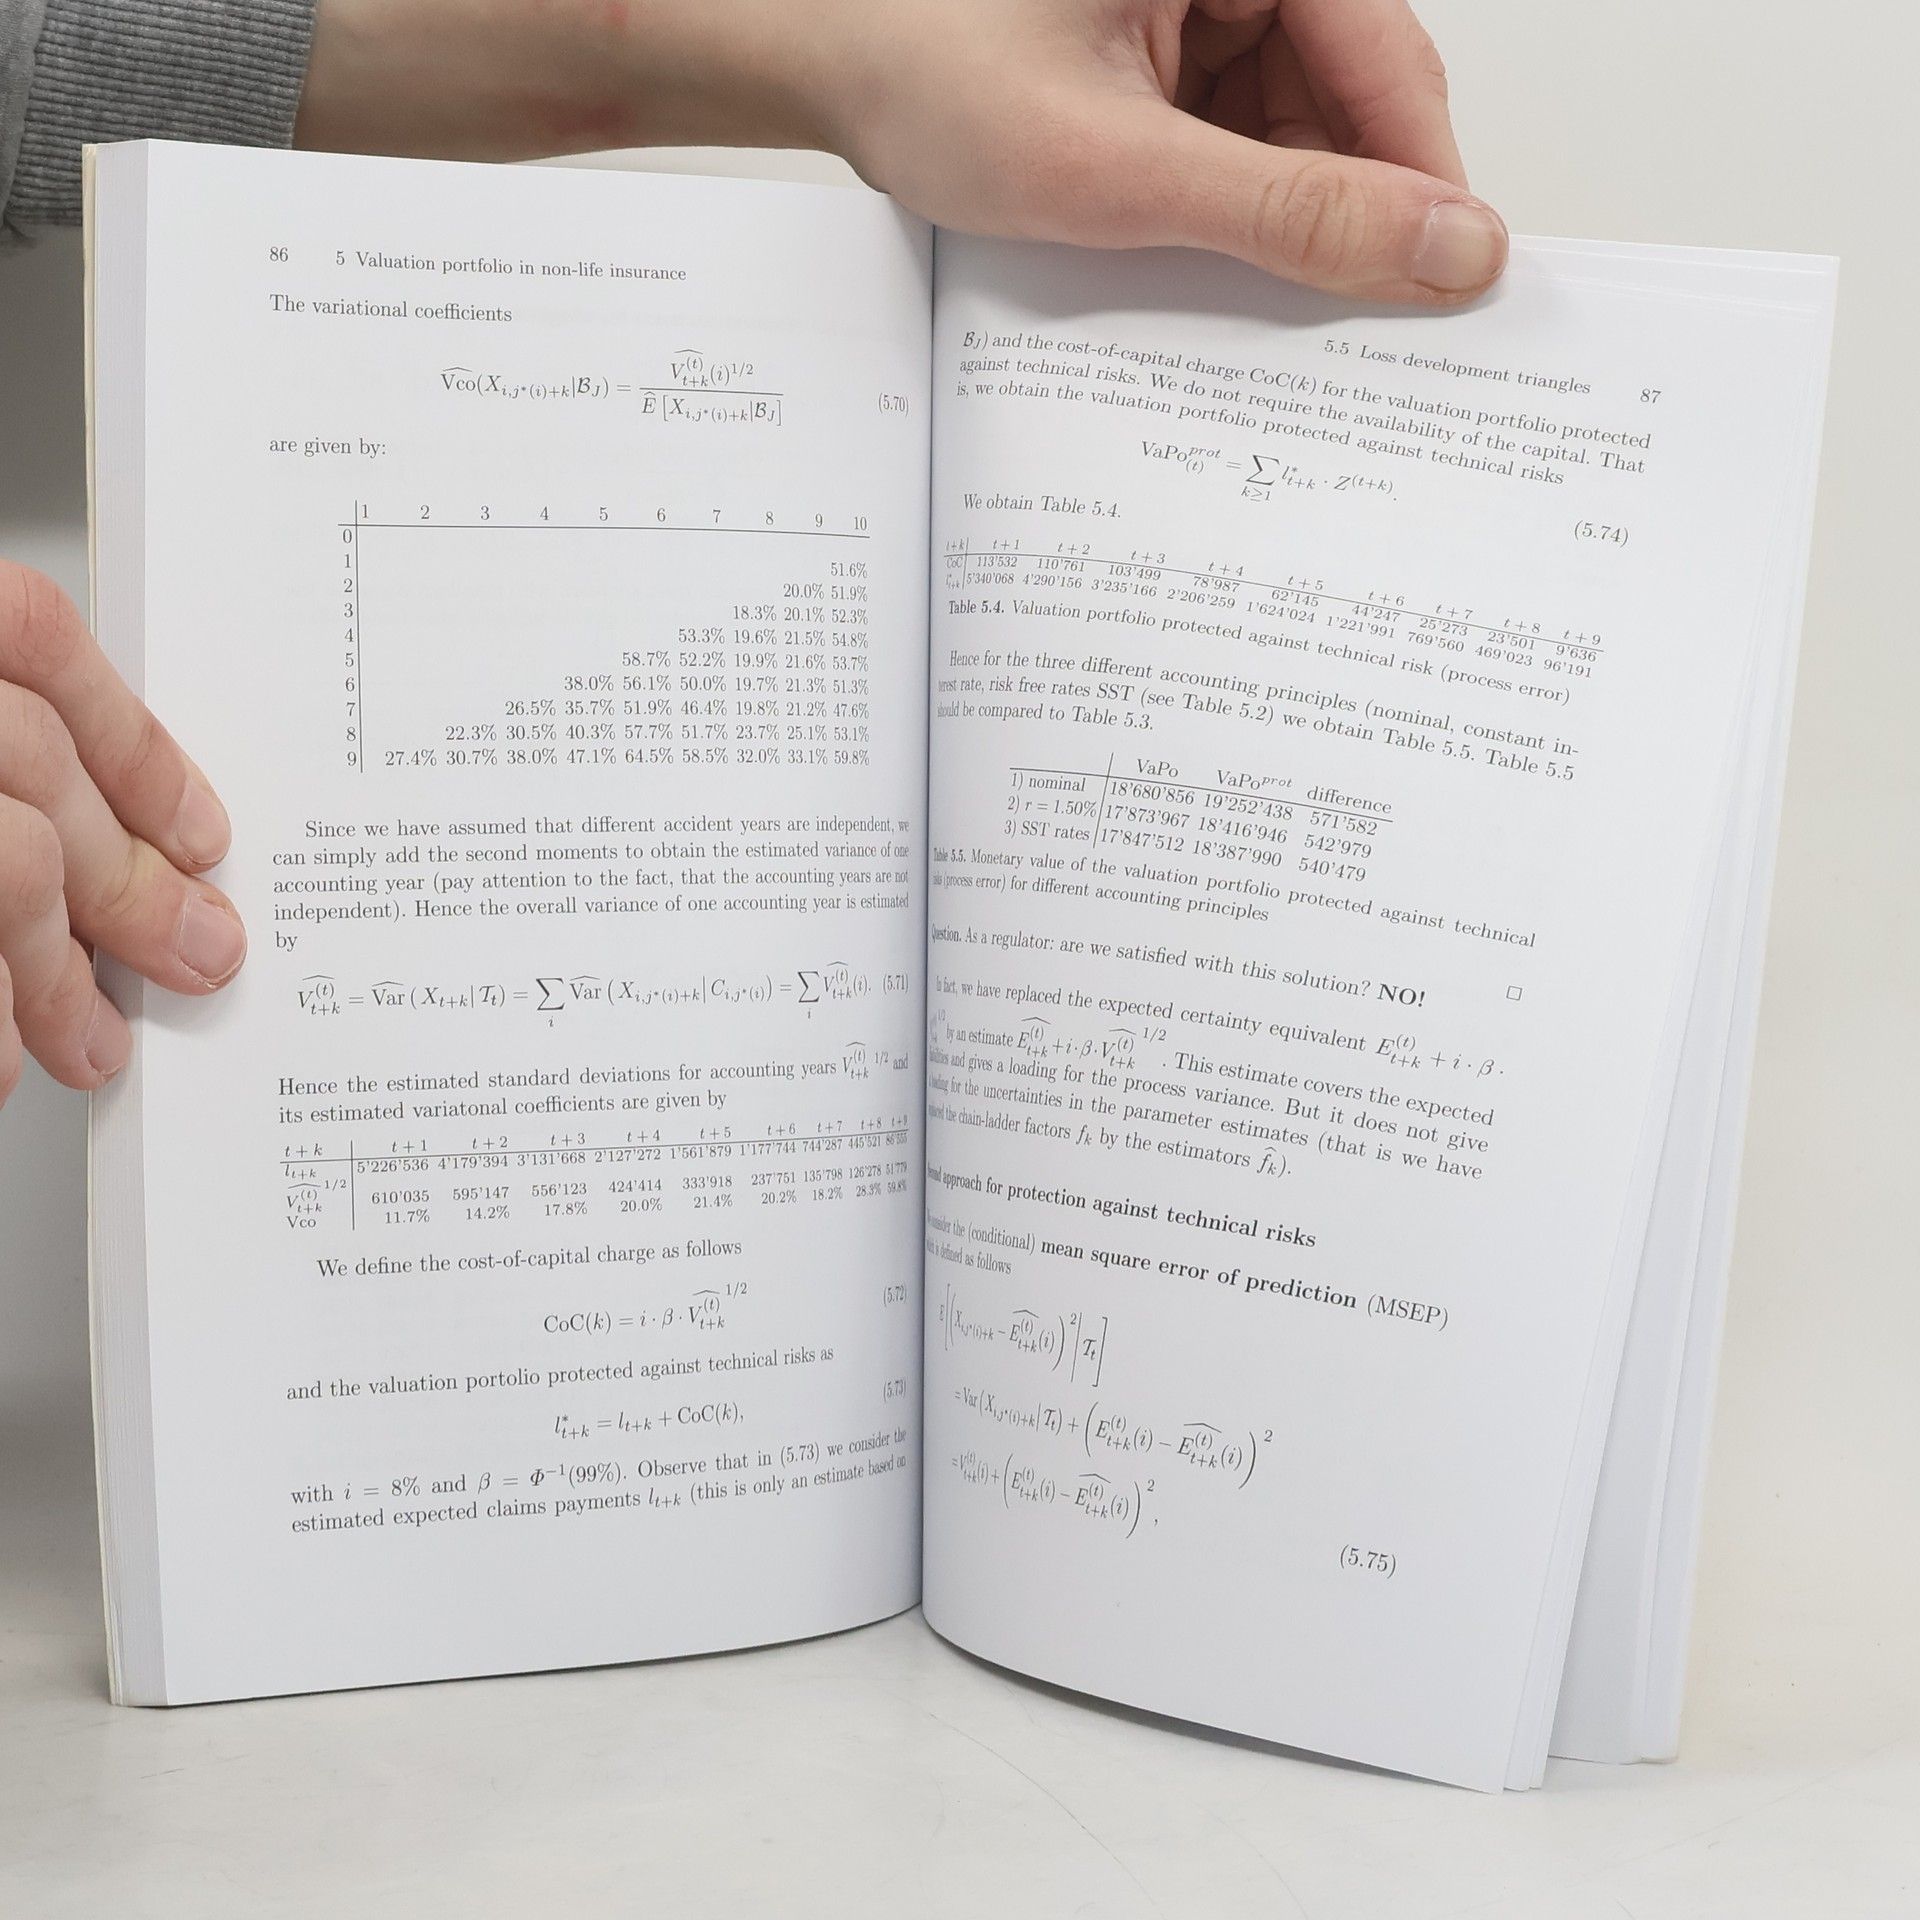 86 5 Valuation portfolio in non-life insurance
The variational coefficients
\widehat{Vco}(X_{i,j*(i)+k}|B_J) = \widehat{V_{t+k}^{(t)}}(i)^{1/2} / \widehat{E}[X_{i,j*(i)+k}|B_J] (5.70)
are given by:
1 2 3 4 5 6 7 8 9 10
0
1 51.6%
2 20.0% 51.9%
3 18.3% 20.1% 52.3%
4 53.3% 19.6% 21.5% 54.8%
5 58.7% 52.2% 19.9% 21.6% 53.7%
6 38.0% 56.1% 50.0% 19.7% 21.3% 51.3%
7 26.5% 35.7% 51.9% 46.4% 19.8% 21.2% 47.6%
8 22.3% 30.5% 40.3% 57.7% 51.7% 23.7% 25.1% 53.1%
9 27.4% 30.7% 38.0% 47.1% 64.5% 58.5% 32.0% 33.1% 59.8%
Since we have assumed that different accident years are independent, we
can simply add the second moments to obtain the estimated variance of one
accounting year (pay attention to the fact, that the accounting years are not
independent). Hence the overall variance of one accounting year is estimated
by
\widehat{V_{t+k}^{(t)}} = \widehat{Var}(X_{t+k}|T_t) = ∑_i \widehat{Var}(X_{i,j*(i)+k}|C_{i,j*(i)}) = ∑_i \widehat{V_{t+k}^{(t)}}(i). (5.71)
Hence the estimated standard deviations for accounting years \widehat{V_{t+k}^{(t)}}^{1/2} and
its estimated variatonal coefficients are given by
t + k t + 1 t + 2 t + 3 t + 4 t + 5 t + 6 t + 7 t + 8 t + 9
l_{t+k} 5'226'536 4'179'394 3'131'668 2'127'272 1'561'879 1'177'744 744'287 445'521 86'555
\widehat{V_{t+k}^{(t)}}^{1/2} 610'035 595'147 556'123 424'414 333'918 237'751 135'798 126'278 51'779
Vco 11.7% 14.2% 17.8% 20.0% 21.4% 20.2% 18.2% 28.3% 59.8%
We define the cost-of-capital charge as follows
CoC(k) = i · β · \widehat{V_{t+k}^{(t)}}^{1/2} (5.72)
and the valuation portolio protected against technical risks as
l*_{t+k} = l_{t+k} + CoC(k), (5.73)
with i = 8% and β = Φ^{-1}(99%). Observe that in (5.73) we consider the
estimated expected claims payments l_{t+k} (this is only an estimate based on
5.5 Loss development triangles 87
B_J) and the cost-of-capital charge CoC(k) for the valuation portfolio protected
against technical risks. We do not require the availability of the capital. That
is, we obtain the valuation portfolio protected against technical risks
VaPo^{prot}_{(t)} = ∑_{k≥1} l*_{t+k} · Z^{(t+k)}. (5.74)
We obtain Table 5.4.
t+k t + 1 t + 2 t + 3 t + 4 t + 5 t + 6 t + 7 t + 8 t + 9
CoC 113'532 110'761 103'499 78'987 62'145 44'247 25'273 23'501 9'636
l*_{t+k} 5'340'068 4'290'156 3'235'166 2'206'259 1'624'024 1'221'991 769'560 469'023 96'191
Table 5.4. Valuation portfolio protected against technical risk (process error)
Hence for the three different accounting principles (nominal, constant in-
terest rate, risk free rates SST (see Table 5.2) we obtain Table 5.5. Table 5.5
should be compared to Table 5.3.
VaPo VaPo^{prot} difference
1) nominal 18'680'856 19'252'438 571'582
2) r = 1.50% 17'873'967 18'416'946 542'979
3) SST rates 17'847'512 18'387'990 540'479
Table 5.5. Monetary value of the valuation portfolio protected against technical
(process error) for different accounting principles
Question. As a regulator: are we satisfied with this solution? NO! □
In fact, we have replaced the expected certainty equivalent E_{t+k}^{(t)} + i · β ·
by an estimate \widehat{E_{t+k}^{(t)}} + i·β·\widehat{V_{t+k}^{(t)}}^{1/2}. This estimate covers the expected
and gives a loading for the process variance. But it does not give
loading for the uncertainties in the parameter estimates (that is we have
the chain-ladder factors f_k by the estimators \widehat{f_k}).
approach for protection against technical risks
the (conditional) mean square error of prediction (MSEP)
is defined as follows
E[(X_{i,j*(i)+k} − \widehat{E_{t+k}^{(t)}}(i))^2 | T_t]
= Var(X_{i,j*(i)+k}|T_t) + (E_{t+k}^{(t)}(i) − \widehat{E_{t+k}^{(t)}}(i))^2
= V_{t+k}^{(t)}(i) + (E_{t+k}^{(t)}(i) − \widehat{E_{t+k}^{(t)}}(i))^2,
(5.75)